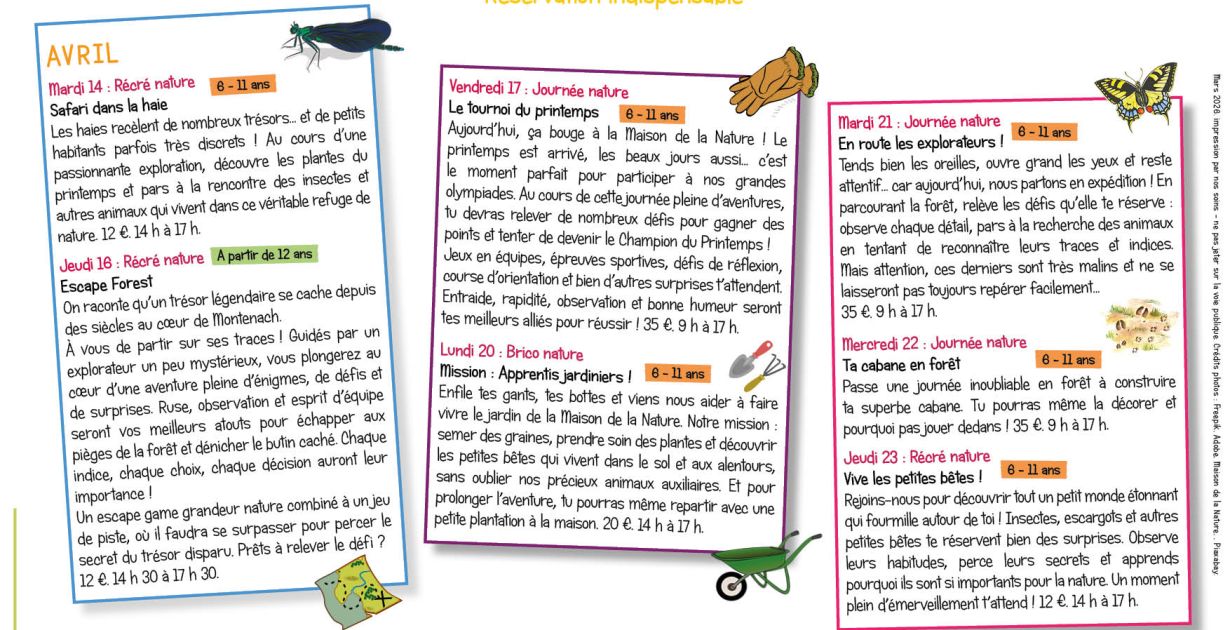 Réservation indispensable
AVRIL
Mardi 14 : Récré nature
6 - 11 ans
Safari dans la haie
Les haies recèlent de nombreux trésors... et de petits
habitants parfois très discrets ! Au cours d'une
passionnante exploration, découvre les plantes du
printemps et pars à la rencontre des insectes et
autres animaux qui vivent dans ce véritable refuge de
nature. 12 €. 14 h à 17 h.
Jeudi 16 : Récré nature
A partir de 12 ans
Escape Forest
On raconte qu'un trésor légendaire se cache depuis
des siècles au cœur de Montenach.
À vous de partir sur ses traces ! Guidés par un
explorateur un peu mystérieux, vous plongerez au
cœur d'une aventure pleine d'énigmes, de défis et
de surprises. Ruse, observation et esprit d'équipe
seront vos meilleurs atouts pour échapper aux
pièges de la forêt et dénicher le butin caché. Chaque
indice, chaque choix, chaque décision auront leur
importance !
Un escape game grandeur nature combiné à un jeu
de piste, où il faudra se surpasser pour percer le
secret du trésor disparu. Prêts à relever le défi ?
12 €. 14 h 30 à 17 h 30.
Vendredi 17 : Journée nature
Le tournoi du printemps
6 - 11 ans
Aujourd'hui, ça bouge à la Maison de la Nature ! Le
printemps est arrivé, les beaux jours aussi... c'est
le moment parfait pour participer à nos grandes
olympiades. Au cours de cette journée pleine d'aventures,
tu devras relever de nombreux défis pour gagner des
points et tenter de devenir le Champion du Printemps !
Jeux en équipes, épreuves sportives, défis de réflexion,
course d'orientation et bien d'autres surprises t'attendent.
Entraide, rapidité, observation et bonne humeur seront
tes meilleurs alliés pour réussir ! 35 €. 9 h à 17 h.
Lundi 20 : Brico nature
Mission : Apprentis jardiniers !
6 - 11 ans
Enfile tes gants, tes bottes et viens nous aider à faire
vivre le jardin de la Maison de la Nature. Notre mission :
semer des graines, prendre soin des plantes et découvrir
les petites bêtes qui vivent dans le sol et aux alentours,
sans oublier nos précieux animaux auxiliaires. Et pour
prolonger l'aventure, tu pourras même repartir avec une
petite plantation à la maison. 20 €. 14 h à 17 h.
Mardi 21 : Journée nature
En route les explorateurs !
6 - 11 ans
Tends bien les oreilles, ouvre grand les yeux et reste
attentif... car aujourd'hui, nous partons en expédition ! En
parcourant la forêt, relève les défis qu'elle te réserve :
observe chaque détail, pars à la recherche des animaux
en tentant de reconnaître leurs traces et indices.
Mais attention, ces derniers sont très malins et ne se
laisseront pas toujours repérer facilement...
35 €. 9 h à 17 h.
Mercredi 22 : Journée nature
Ta cabane en forêt
6 - 11 ans
Passe une journée inoubliable en forêt à construire
ta superbe cabane. Tu pourras même la décorer et
pourquoi pas jouer dedans ! 35 €. 9 h à 17 h.
Jeudi 23 : Récré nature
Vive les petites bêtes !
6 - 11 ans
Rejoins-nous pour découvrir tout un petit monde étonnant
qui fourmille autour de toi ! Insectes, escargots et autres
petites bêtes te réservent bien des surprises. Observe
leurs habitudes, perce leurs secrets et apprends
pourquoi ils sont si importants pour la nature. Un moment
plein d'émerveillement t'attend ! 12 €. 14 h à 17 h.
Mars 2026. impression par nos soins - ne pas jeter sur la voie publique. Crédits photos : Freepik. Adobe. Maison de la Nature. . Pixabay.